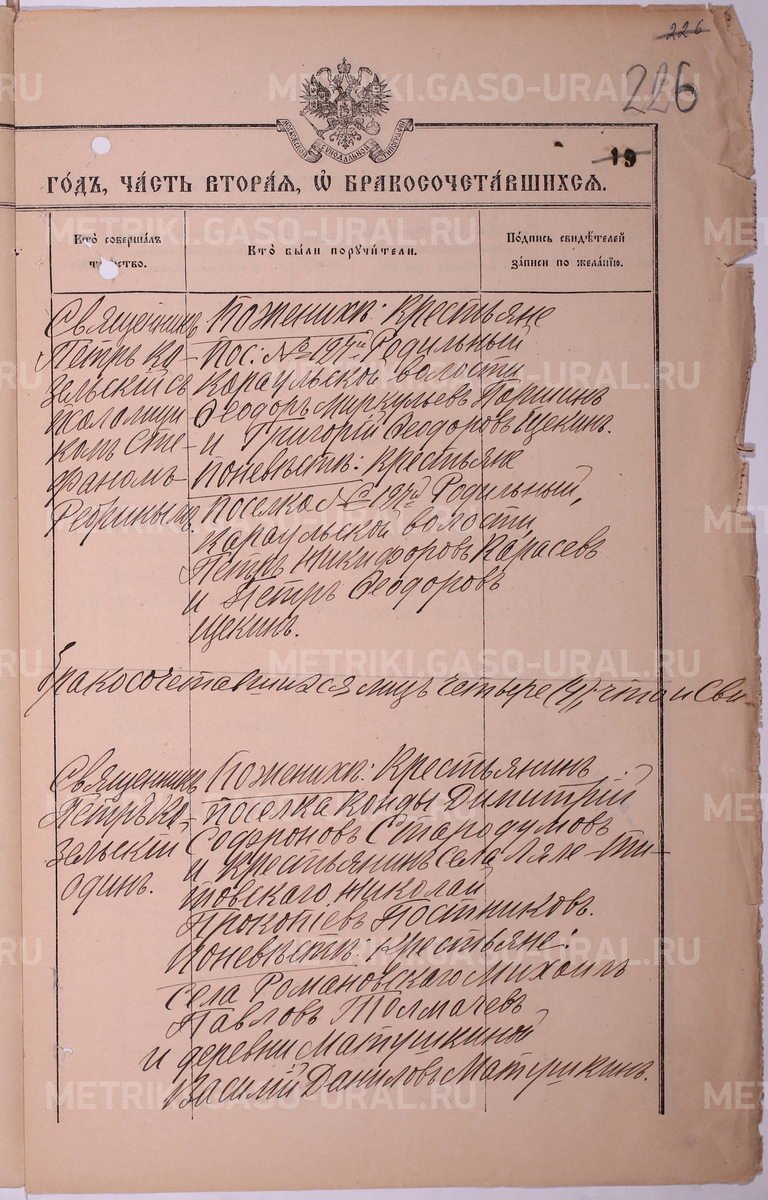 226
226
МОСКОВСКОЙ СѴНОДАЛЬНОЙ ТИПОГРАФІИ
19
ГО́ДЪ, ЧА́СТЬ ВТОРА́Ѧ, Ѡ҆ БРАКОСОЧЕТА́ВШИХСѦ.
Кто̀ соверша́лъ
та́инство.
Кто̀ бы́ли поручи́тели.
По́дпись свидѣ́телей
за́писи по жела́нїю.
Священникъ
Петръ Ко-
зельскій съ
псаломщи
комъ Сте-
фаномъ
Редикы
По женихѣ: Крестьяне
пос: № 197й Родильный
Караульской волости
Ѳеодоръ Миркульевъ Паршинъ
и Григорій Ѳеодоровъ Щекинъ.
По невѣстѣ: Крестьяне
поселка № 197й Родильный,
Караульской волости,
Петръ Никифоровъ Карасевъ
и Петръ Ѳеодоровъ
Щекинъ.
Бракосочетавшихся лицъ четвере (4), что и сви-
Священникъ
Петръ Ко-
зельскій
одинъ.
По женихѣ: Крестьянинъ
поселка Конды Димитрій
Софроновъ Стародумовъ
и крестьянинъ села Ляле-Ти-
товскаго Николай
Прокопіевъ Постниковъ.
По невѣстѣ: Крестьяне:
села Романовскаго Михаилъ
Павловъ Толмачевъ
и деревни Матушкиной
Василій Даниловъ Матушкинъ.
METRIKI.GASO-URAL.RU